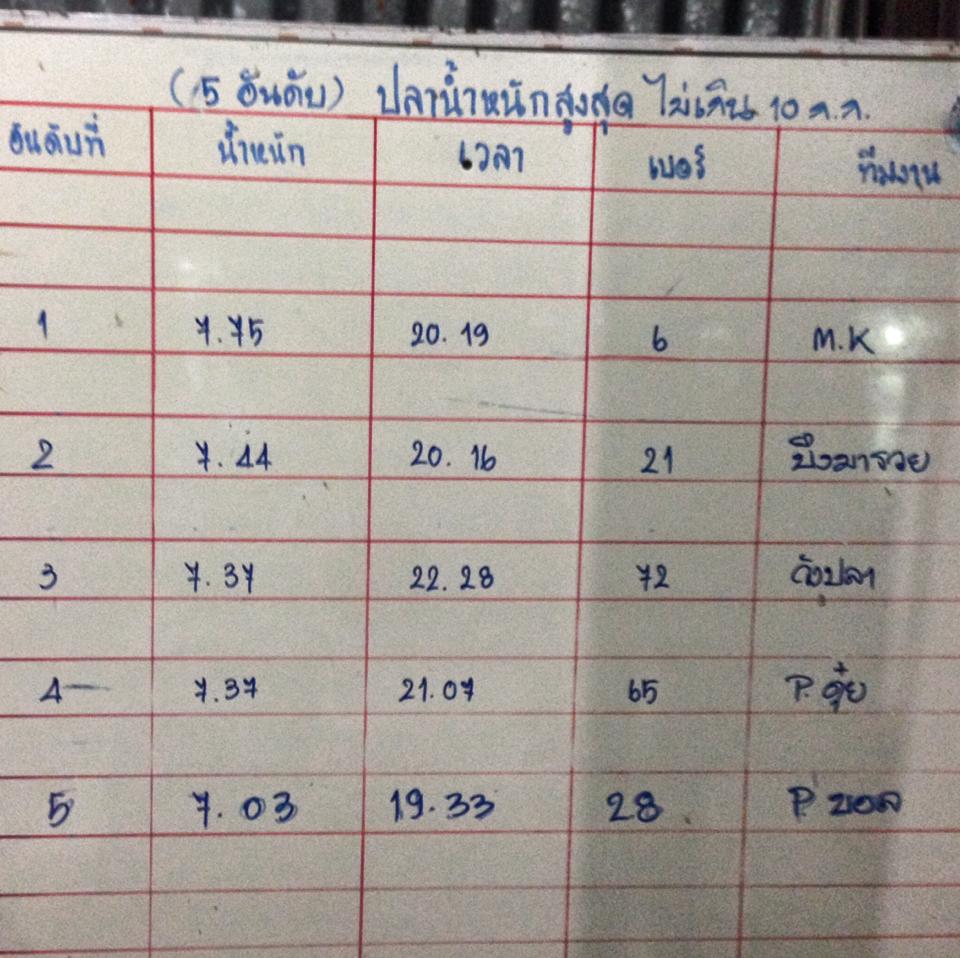 (5 อันดับ) ปลาน้ำหนักสูงสุด ไม่เกิน 10 ก.ก.
อันดับที่ น้ำหนัก เวลา เบอร์ ทีมงาน
1 7.75 20.19 6 M.K
2 7.44 20.16 21 บึงมารวย
3 7.37 22.28 72 วังปลา
4 7.37 21.07 65 P. ตุ๋ย
5 7.03 19.33 28 P. บอล